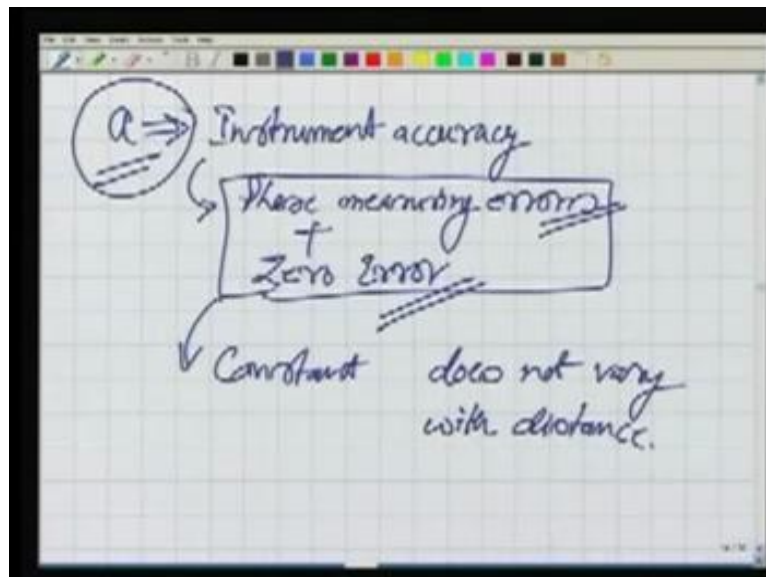 a ⇒ Instrument accuracy
Phase measuring errors
+
Zero Error
Constant does not vary
with distance.